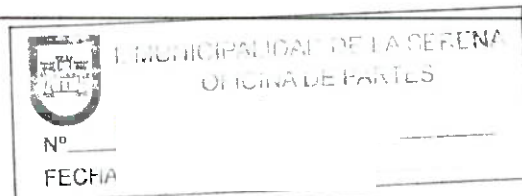 I. MUNICIPALIDAD DE LA SERENA
OFICINA DE PARTES
Nº
FECHA